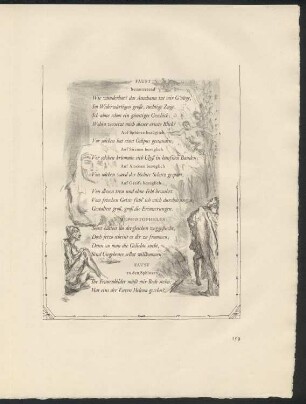 FAUST
herantretend
Wie wunderbar! das Anschaun tut mir G'nüge,
Im Widerwärtigen große, tüchtige Züge.
Ich ahne schon ein günstiges Geschick;
Wohin versetzt mich dieser ernste Blick!
Auf Sphinxe bezüglich.
Vor solchen hat einst Ödipus gestanden;
Auf Sirenen bezüglich.
Vor solchen krümmte sich Ulyß in hänfnen Banden;
Auf Ameisen bezüglich.
Von solchen ward der höchste Schatz gespart,
Auf Greife bezüglich.
Von diesen treu und ohne Fehl bewahrt.
Vom frischen Geiste fühl' ich mich durchdrungen,
Gestalten groß, groß die Erinnerungen.
MEPHISTOPHELES
Sonst hättest du dergleichen weggeflucht,
Doch jetzo scheint es dir zu frommen;
Denn wo man die Geliebte sucht,
Sind Ungeheuer selbst willkommen.
FAUST
zu den Sphinxen
Ihr Frauenbilder müßt mir Rede stehn:
Hat eins der Euren Helena gesehn?